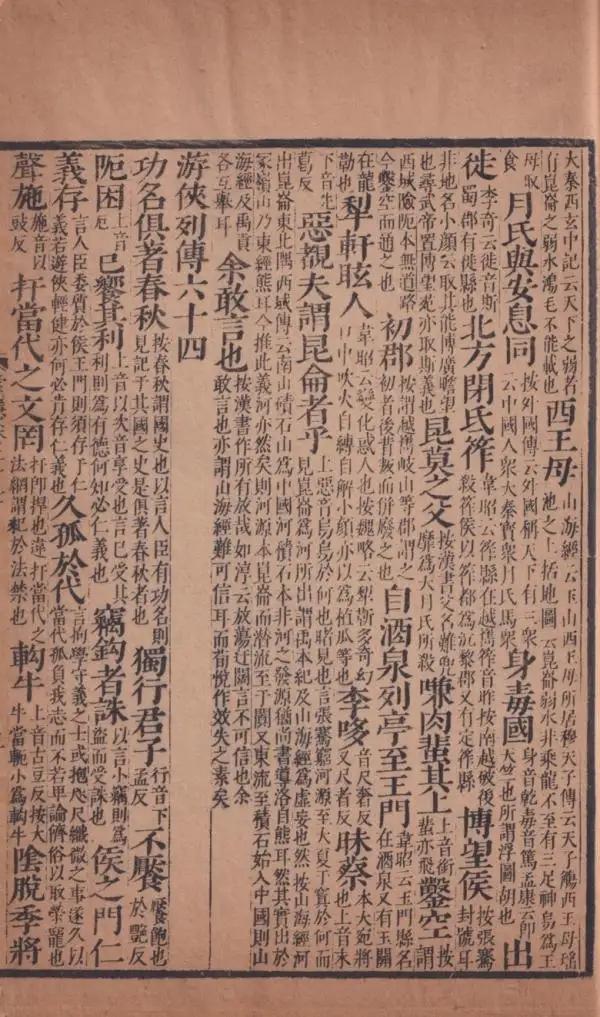 大秦西玄中記云天下之弱者有崑崙之弱水鴻毛不能載也西王母山海經云玉山西王母所居穆天子傳云天子觴西王母瑶池之上括地圖云崑崙弱水非乗龍不至有三足神烏爲王
母取食月氏與安息同按外國傳云外國稱天下有三衆云中國人衆大秦寶衆月氏馬衆身毒國身音乾毒音篤孟康云即天竺也所謂浮圖胡也出
徙李奇云徙音斯蜀郡有徙縣也北方閉氐筰韋昭云筰縣在越嶲筰音昨按南越破後殺筰侯以筰都爲沉黎郡又有定筰縣博望侯按張騫封號耳
非地名小顔云取其能博廣瞻望也尋武帝置博望苑亦取斯義也昆莫之父按漢書父名難兜靡爲大月氏所殺嗛肉蜚其上上音銜蜚亦飛鑿空按謂
西域險阨本無道路今鑿空而通之也初郡按謂越嶲岐山等郡謂之初者後背叛而併廢之也自酒泉列亭至玉門韋昭云玉門縣名在酒泉又有玉關
在龍勒也犁軒眩人韋昭云變化惑人也按魏略云犁靳多奇幻口中吹火自縛自解小顔亦以爲植瓜等也李哆音尺奢反又尺者反昧蔡本大宛將也上音末
下音先葛反惡覩夫謂昆侖者乎上惡音烏烏於何也睹見也言張騫窮河源至大夏于窴於何而見崑崙爲河所出謂禹本紀及山海經爲虚妄也然按山海經河
出崑崙東北隅西域傳云南山積石山爲中國河積石本非河之發源猶尚書導洛自熊耳然其實出於冢嶺山乃東經熊耳今推此義河亦然矣則河源本崑崙而潜流至于闐又東流至積石始入中國則山
海經及禹貢各互舉耳余敢言也按漢書作所有放哉如淳云放蕩迂闊言不可信也余敢言也亦謂山海經難可信耳而荀悅作效失之素矣
游俠列傳六十四
功名俱著春秋按春秋謂國史也以言人臣有功名則見記于其國之史是俱著春秋者也獨行君子行音下孟反不饜饜飽也於艷反
阨困上音厄已饗其利上音以欠音享受也言已受其利則爲有德何知必仁義也竊鈎者誅以言小竊則爲盗而受誅也侯之門仁
義存言人臣委質於侯王門則須存于仁義若遊俠輕健亦何必肯存仁義也久孤於代言拘學守義之士或抱咫尺纖微之事遂久以當代孤負我志而不若卑論儕俗以取榮寵也
聲施施音以豉反扞當代之文罔扞即捍也違扞當代之法網謂犯於法禁也軥牛上音古豆反按大牛當軛小爲軥牛陰脫季將